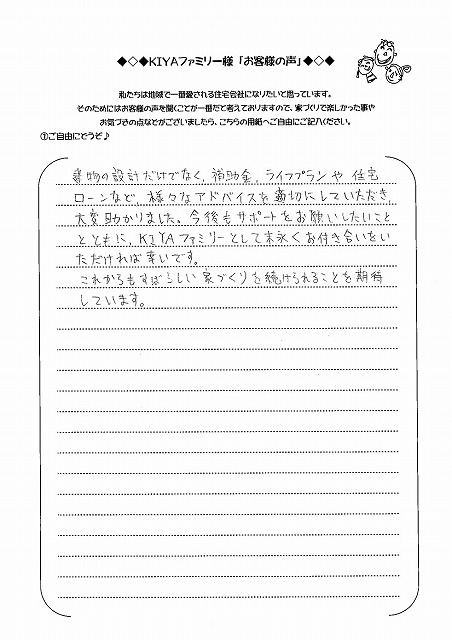 ◆◇◆KIYAファミリー様「お客様の声」◆◇◆
私たちは地域で一番愛される住宅会社になりたいと思っています。
そのためにはお客様の声を聞くことが一番だと考えておりますので、家づくりで楽しかった事や
お気づきの点などがございましたら、こちらの用紙へご自由にご記入ください。
①ご自由にどうぞ♪
建物の設計だけでなく、補助金、ライフプランや住宅
ローンなど、様々なアドバイスを適切にしていただき、
大変助かりました。今後もサポートをお願いしたいこと
とともに、KIYAファミリーとして末永くお付き合いをい
ただければ幸いです。
これからもすばらしい家づくりを続けられることを期待
しています。